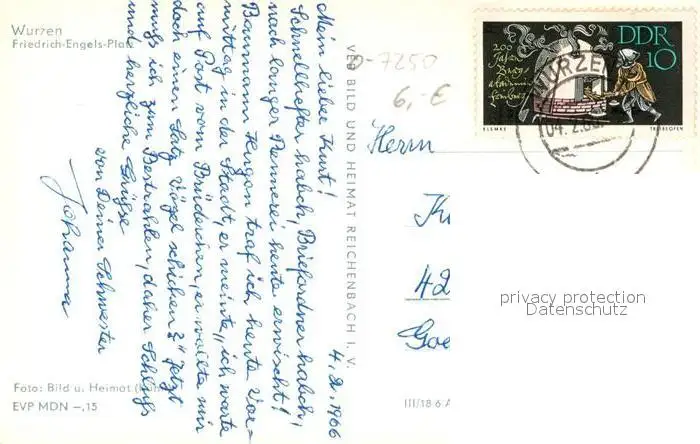 Wurzen
Friedrich-Engels-Platz
4.2.1966
Mein lieber Knut!
Schnellhefter halich, Briefordner halich,
nach langer Rennerei heute erwischt!
Baumann Hugon traf ich heute Vor-
mittag in der Stadt, er meinte, "ich warte
auf Post vom Brüderchen, er wollte mir
doch einen Satz Vögel schicken?" Jetzt
muß ich zum Bestrahlen, daher Schluß
und herzliche Grüße
von Deiner Schwester
Johanna
Foto: Bild u. Heimat
EVP MDN –,15
VEB BILD UND HEIMAT REICHENBACH I. V.
III/18 6 A
D-7250
6,-€
200
Jahre
Berg-
akademie
Freiberg
DDR
10
KLEMKE
WURZEN
04.2.66
Herrn
42
privacy protection
Datenschutz